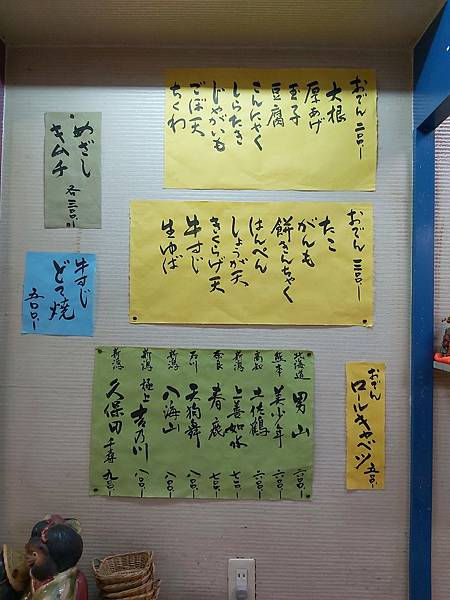 おでん 二〇〇ー
大根
厚あげ
玉子
豆腐
こんにゃく
しらたき
じゃがいも
ごぼ天
ちくわ
おでん 三〇〇ー
たこ
がんも
餅きんちゃく
はんぺん
しょうが天
きくらげ天
牛すじ
生ゆば
めざし
キムチ 各三〇〇ー
牛すじ
どて焼
五〇〇ー
おでん
ロールキャベツ
五〇〇ー
北海道 男山 六〇〇ー
熊本 美少年 六〇〇ー
高知 土佐鶴 六〇〇ー
新潟 上善如水 七〇〇ー
奈良 春鹿 七〇〇ー
石川 天狗舞 八〇〇ー
新潟 八海山 八〇〇ー
新潟 極上 吉乃川 八〇〇ー
新潟 久保田 千寿 九〇〇ー